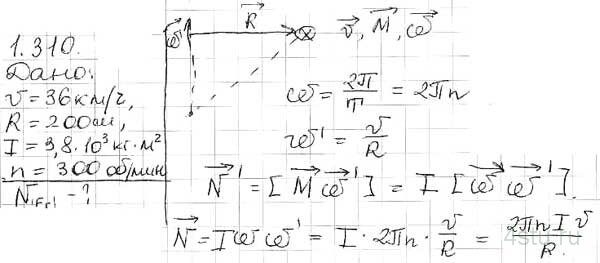 1.310.
Дано:
v = 36 км/ч,
R = 200 м,
I = 3,8·10³ кг·м²
n = 300 об/мин
N гир - ?
ω⃗' R⃗ v⃗, M⃗, ω⃗
ω = 2π/T = 2πn
ω' = v/R
N⃗' = [M⃗ ω⃗'] = I [ω⃗ ω⃗'].
N⃗ = Iωω' = I · 2πn · v/R = 2πnIv/R.
4stu.ru